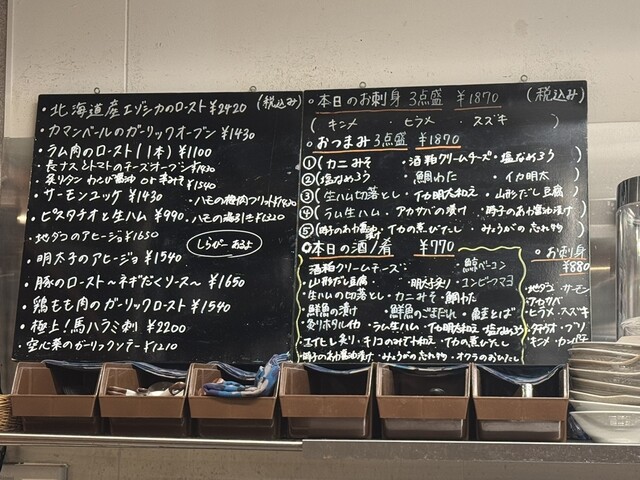 ・北海道産エゾシカのロースト ¥2420 (税込み)
・カマンベールのガーリックオーブン ¥1430
・ラム肉のロースト(1本) ¥1100
・長ナスとトマトのチーズオーブン ¥1430
・炙りタン わさび醤油 or 辛みそ ¥1540
・サーモンユッケ ¥1430
・ハモの梅肉フリット ¥1320
・ピスタチオと生ハム ¥990
・ハモの湯引き ¥1320
・地ダコのアヒージョ ¥1650
しらぴーあるよ
・明太子のアヒージョ ¥1540
・豚のロースト~ネギだくソース~ ¥1650
・鶏もも肉のガーリックロースト ¥1540
・極上!馬ハラミ刺 ¥2200
・空心菜のガーリックソテー ¥1210
・本日のお刺身 3点盛 ¥1870 (税込み)
(キンメ ・ ヒラメ ・ スズキ)
・おつまみ 3点盛 ¥1870
①(カニみそ ・酒粕クリームチーズ ・塩なめろう)
②(塩なめろう ・鯛わた ・イカ明太)
③(生ハム切落とし ・イカ明太和え ・山形だし豆腐)
④(ラム生ハム ・アカサバの漬け ・時子のあわ醤油漬け)
⑤(時子のあわ醤油漬け ・イカの煮びたし ・みょうがの忘れ物)
・本日の酒ノ肴 ¥770
・酒粕クリームチーズ ・鯨ベーコン
・山形だし豆腐 ・明太子炙り ・コンビーフマヨ
・生ハムの切落とし ・カニみそ ・鯛わた
・鮮魚の漬け ・鮮魚のごまだれ ・鮭とば
・炙りホタルイカ ・ラム生ハム ・イカ明太和え ・塩なめろう
・エイヒレ炙り ・キノコのみぞれ和え ・イカの煮びたし
・時子のあわ醤油漬け ・みょうがの忘れ物 ・オクラのおひたし
・お刺身
¥880
・地ダコ ・サーモン
・アカサバ
・ヒラメ ・スズキ
・タチウオ ・ブリ
・キンメ ・カンパチ